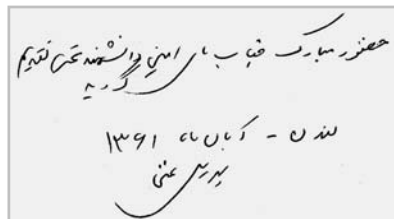 حضور مبارک جناب آقای امینی دانشمند تقدیم
گردید
لندن - آبان ماه ۱۳۶۱